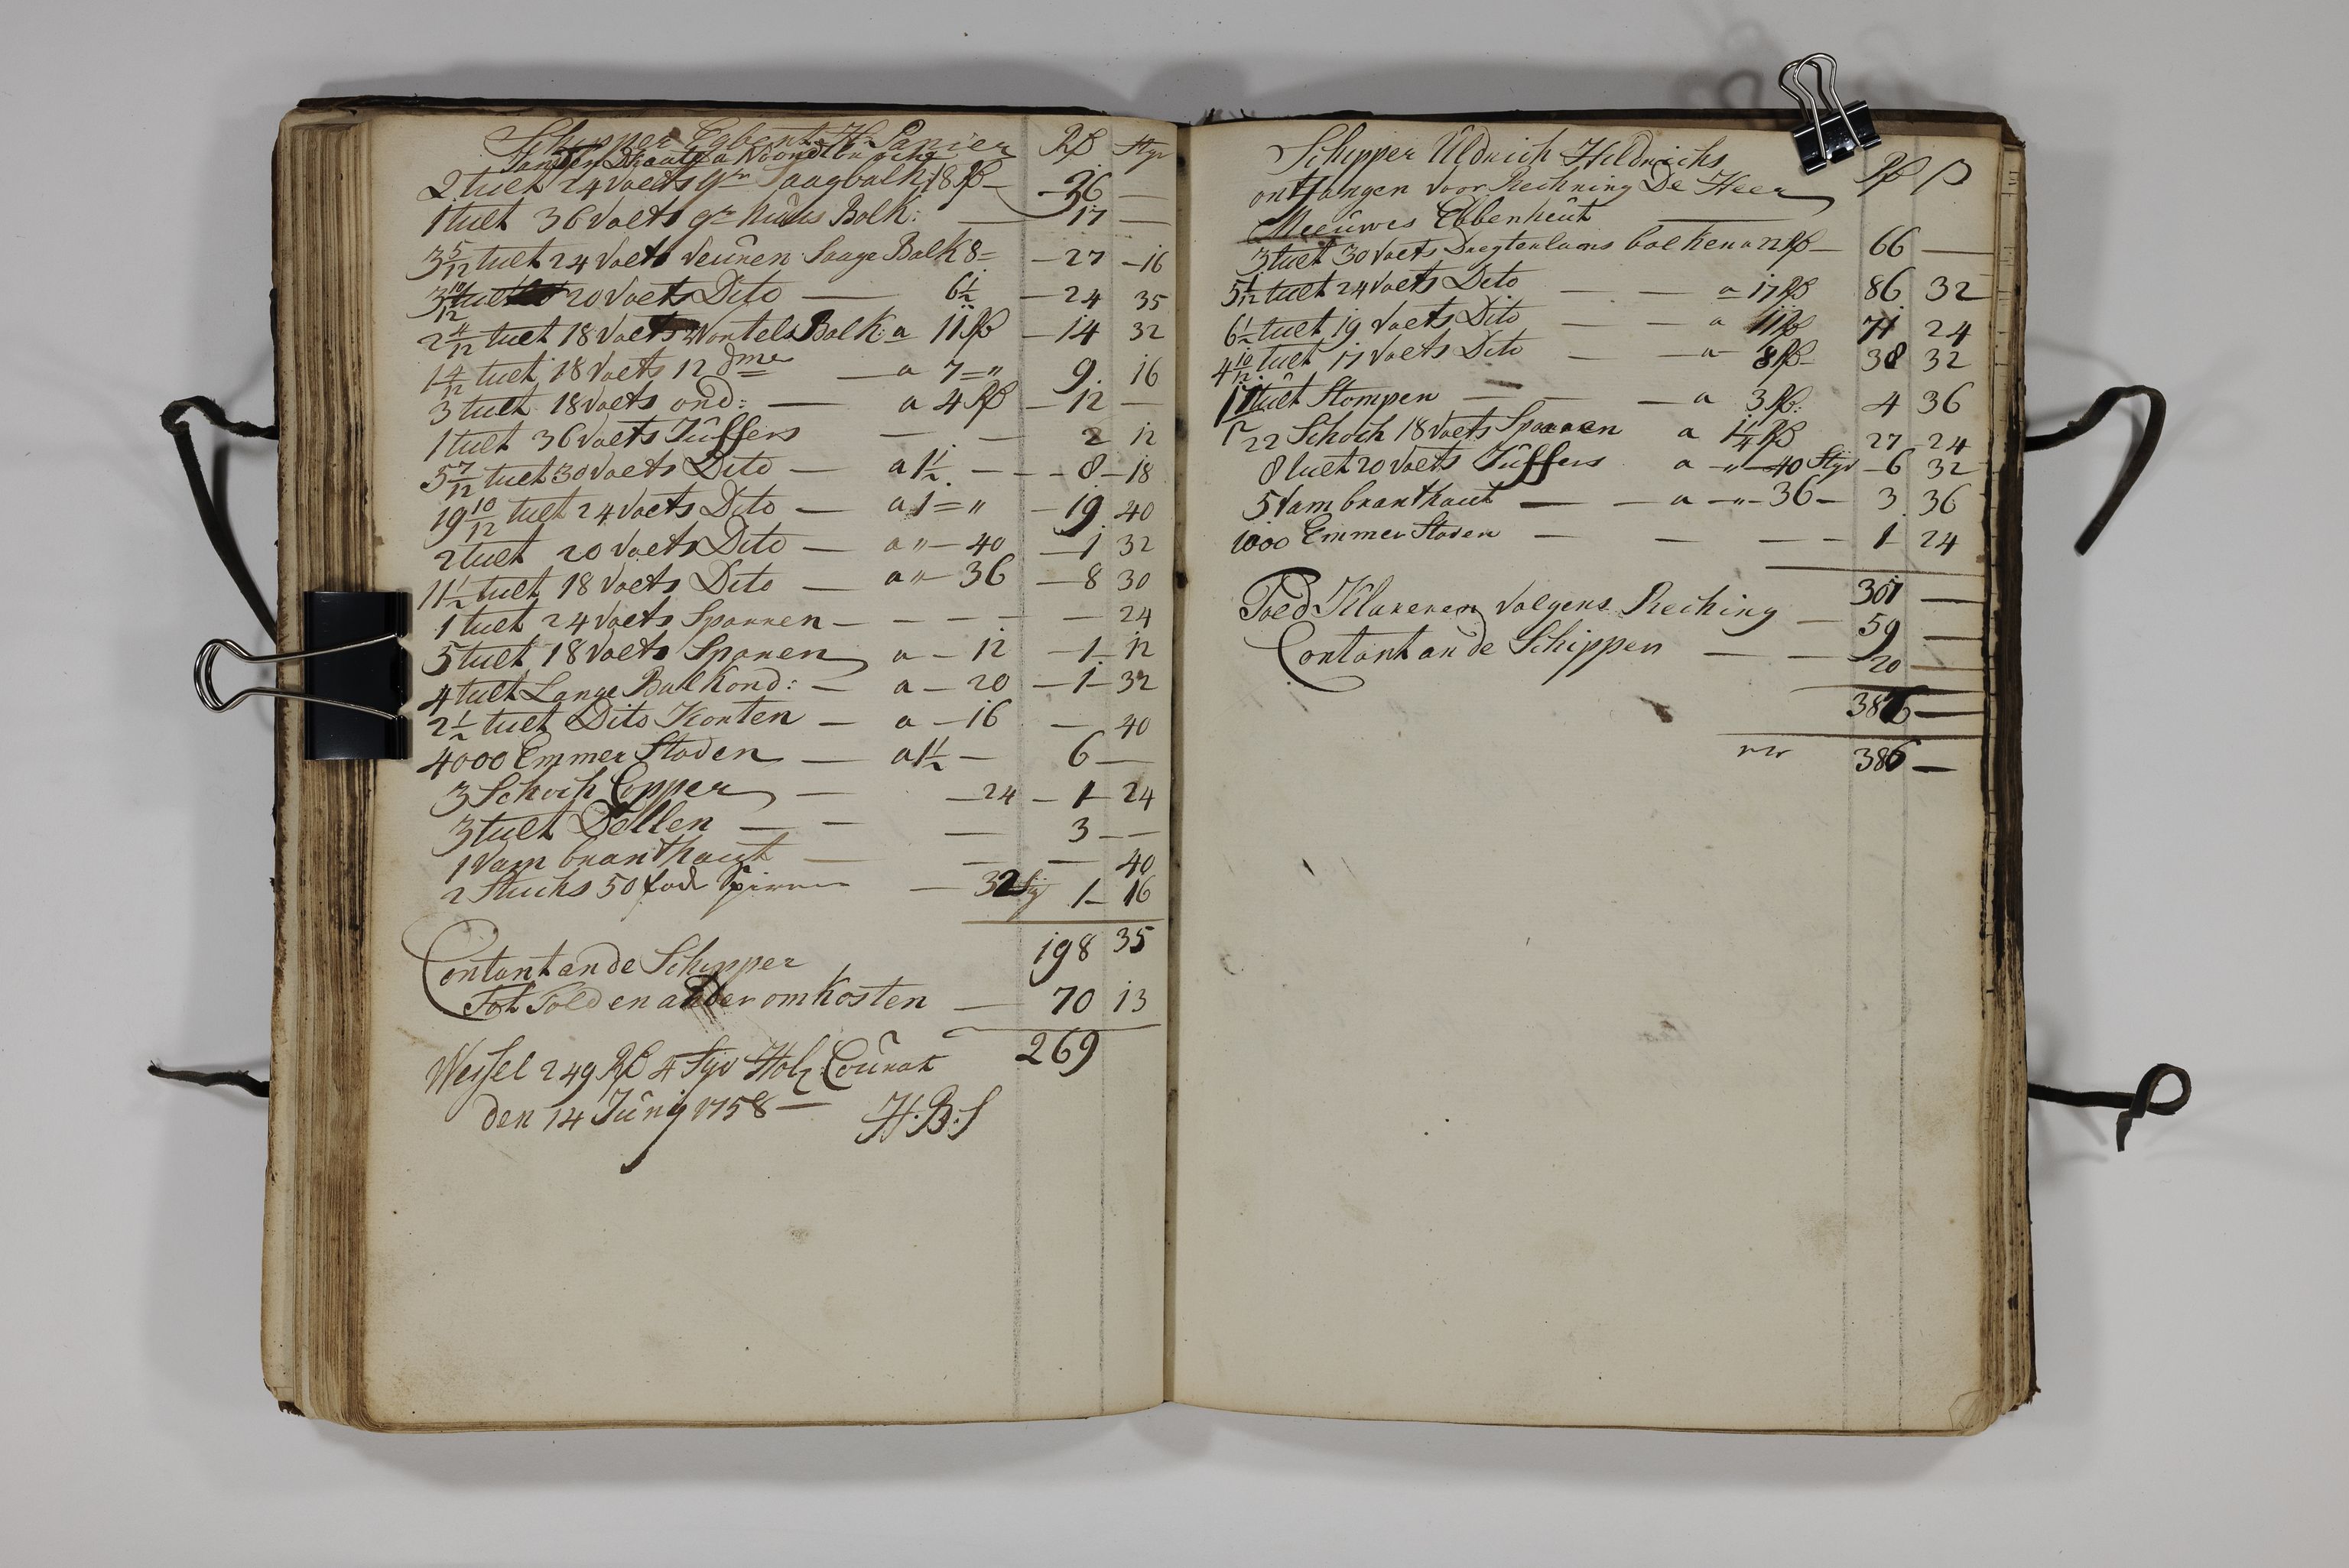 Schipper Egbert Hr Panier
2 tult 24 Voets gr Saagbalk 18 Rß — 36 —
1 tult 36 Voets gr huus Balk: — 17 —
3 5/12 tult 24 Voets veuren Saage Balk 8 = — 27 — 16
3 10/12 tult 20 Voets Dito — 6 1/2 — 24 35
2 4/12 tult 18 Voets Wortels Balk: a 11 Rß — 14 32
1 4/12 tult 18 Voets 12 dme — a 7 = " 9. 16
3 tult 18 Voets ond: — a 4 Rß — 12 —
1 tult 36 Voets Juffers — — 2 12
5 7/12 tult 30 Voets Dito — a 1 1/2 — 8 — 18
19 10/12 tult 24 Voets Dito — a 1 = " — 19. 40
2 tult 20 Voets Dito — a " — 40 — 1 32
11 1/2 tult 18 Voets Dito — a " — 36 — 8 30
1 tult 24 Voets Sparren — — — — — 24
5 tult 18 Voets Sparen a — 12 — 1 — 12
4 tult Lange Balk ond: — a — 20 — 1 — 32
2 1/2 tult Dito Korten — a — 16 — 40
4000 Emmer Staven — a 1 1/2 — 6 —
3 Schock Epper — — 24 — 1 — 24
3 tult Dellen — — — 3 — —
1 Vam branthaut — — — 40
2 Stucks 50 fode Spirren — 32 Stj 1 — 16
198 35
Contant an de Schipper
Tot Told en ander omkosten — 70 13
269
Wessel 249 Rß 4 Styv Holz: Courat
den 14 Junij 1758 — H.B.S
Schipper Uldrich Hildrichs
Rß ß
ontfangen Voor Rechning De Heer
Meeuwes Ebbenheut
3 tult 30 Voets Dregterlaans balken a 22 Rß — 66 —
5 1/12 tult 24 Voets Dito — — a 17 Rß 86 32
6 1/2 tult 19 Voets Dito — — a 11 Rß 71 24
4 10/12 tult 17 Voets Dito — — a 8 Rß 38 32
tult Stompen — — a 3 Rß: 4 36
22 Schock 18 Voets Sparren a 1 1/4 Rß 27 — 24
8 tult 20 Voets Juffers a " — 40 Styv — 6 32
5 Vam branthaut — — a — " — 36 — 3 36
1000 Emmer Staven — — — — 1 — 24
307 —
Toed Klareren Volgens Reching — 59 —
Contant an de Schipper — — 20 —
386 —
386 —